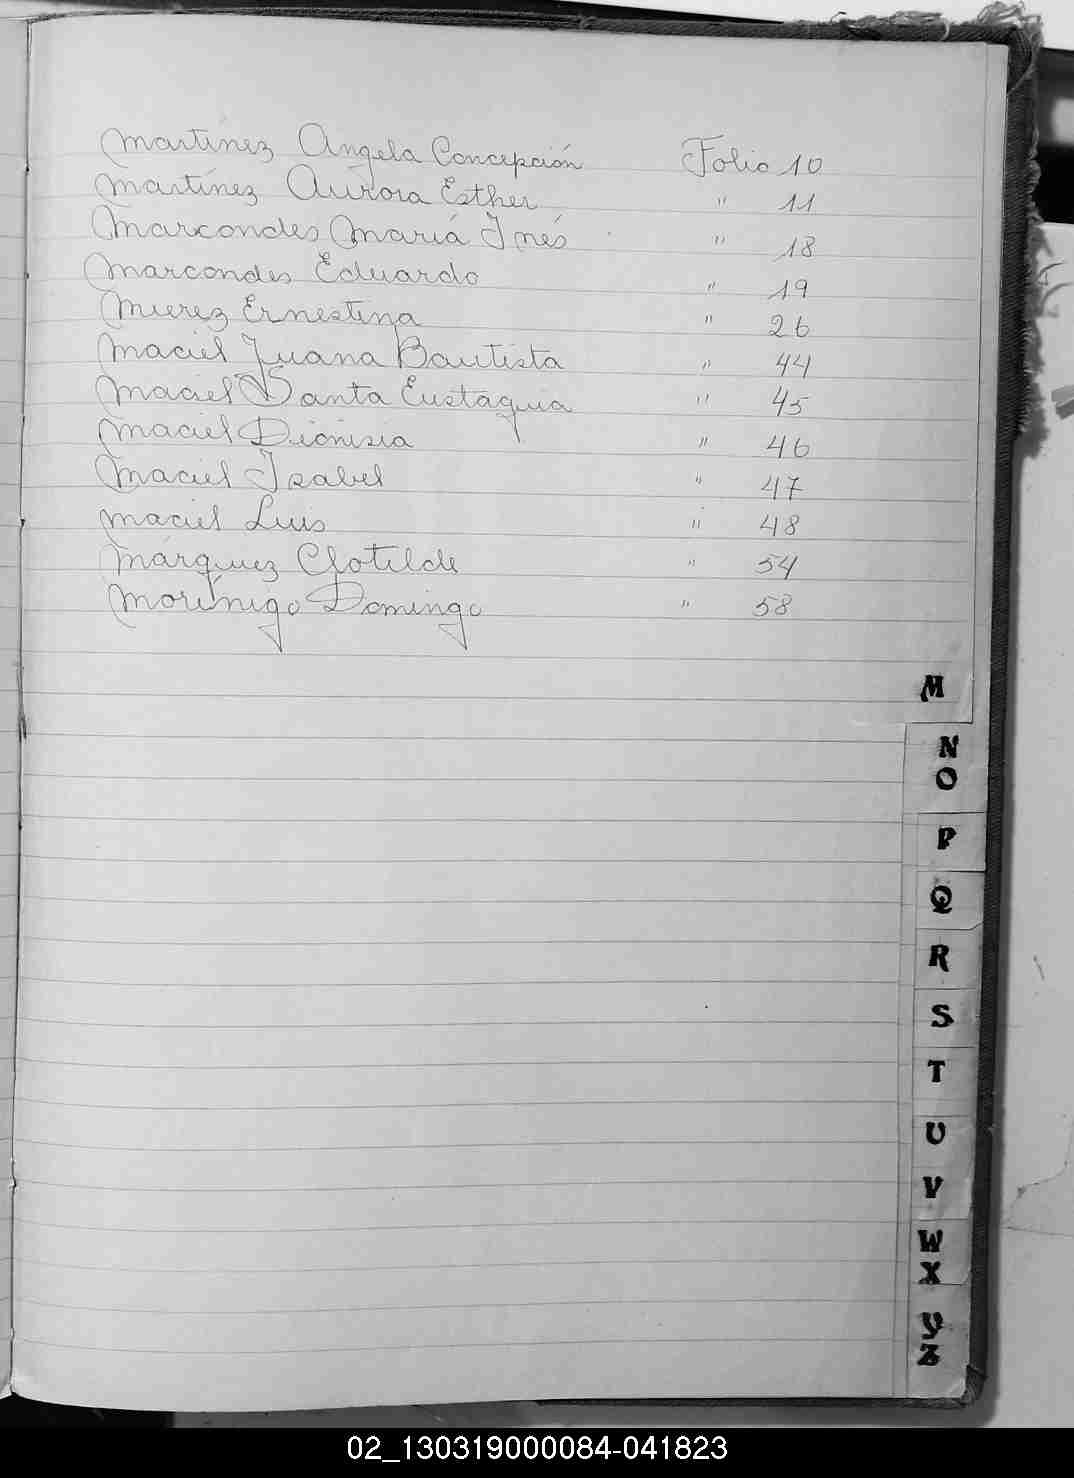 Martínez Angela Concepción Folio 10
Martínez Aurora Esther " 11
Marcondes María Inés " 18
Marcondes Eduardo " 19
Mierez Ernestina " 26
Maciel Juana Bautista " 44
Maciel Santa Eustaquia " 45
Maciel Dionisia " 46
Maciel Isabel " 47
Maciel Luis " 48
Márquez Clotilde " 54
Morínigo Domingo " 58
M
N
O
P
Q
R
S
T
U
V
W
X
Y
Z
02_130319000084-041823